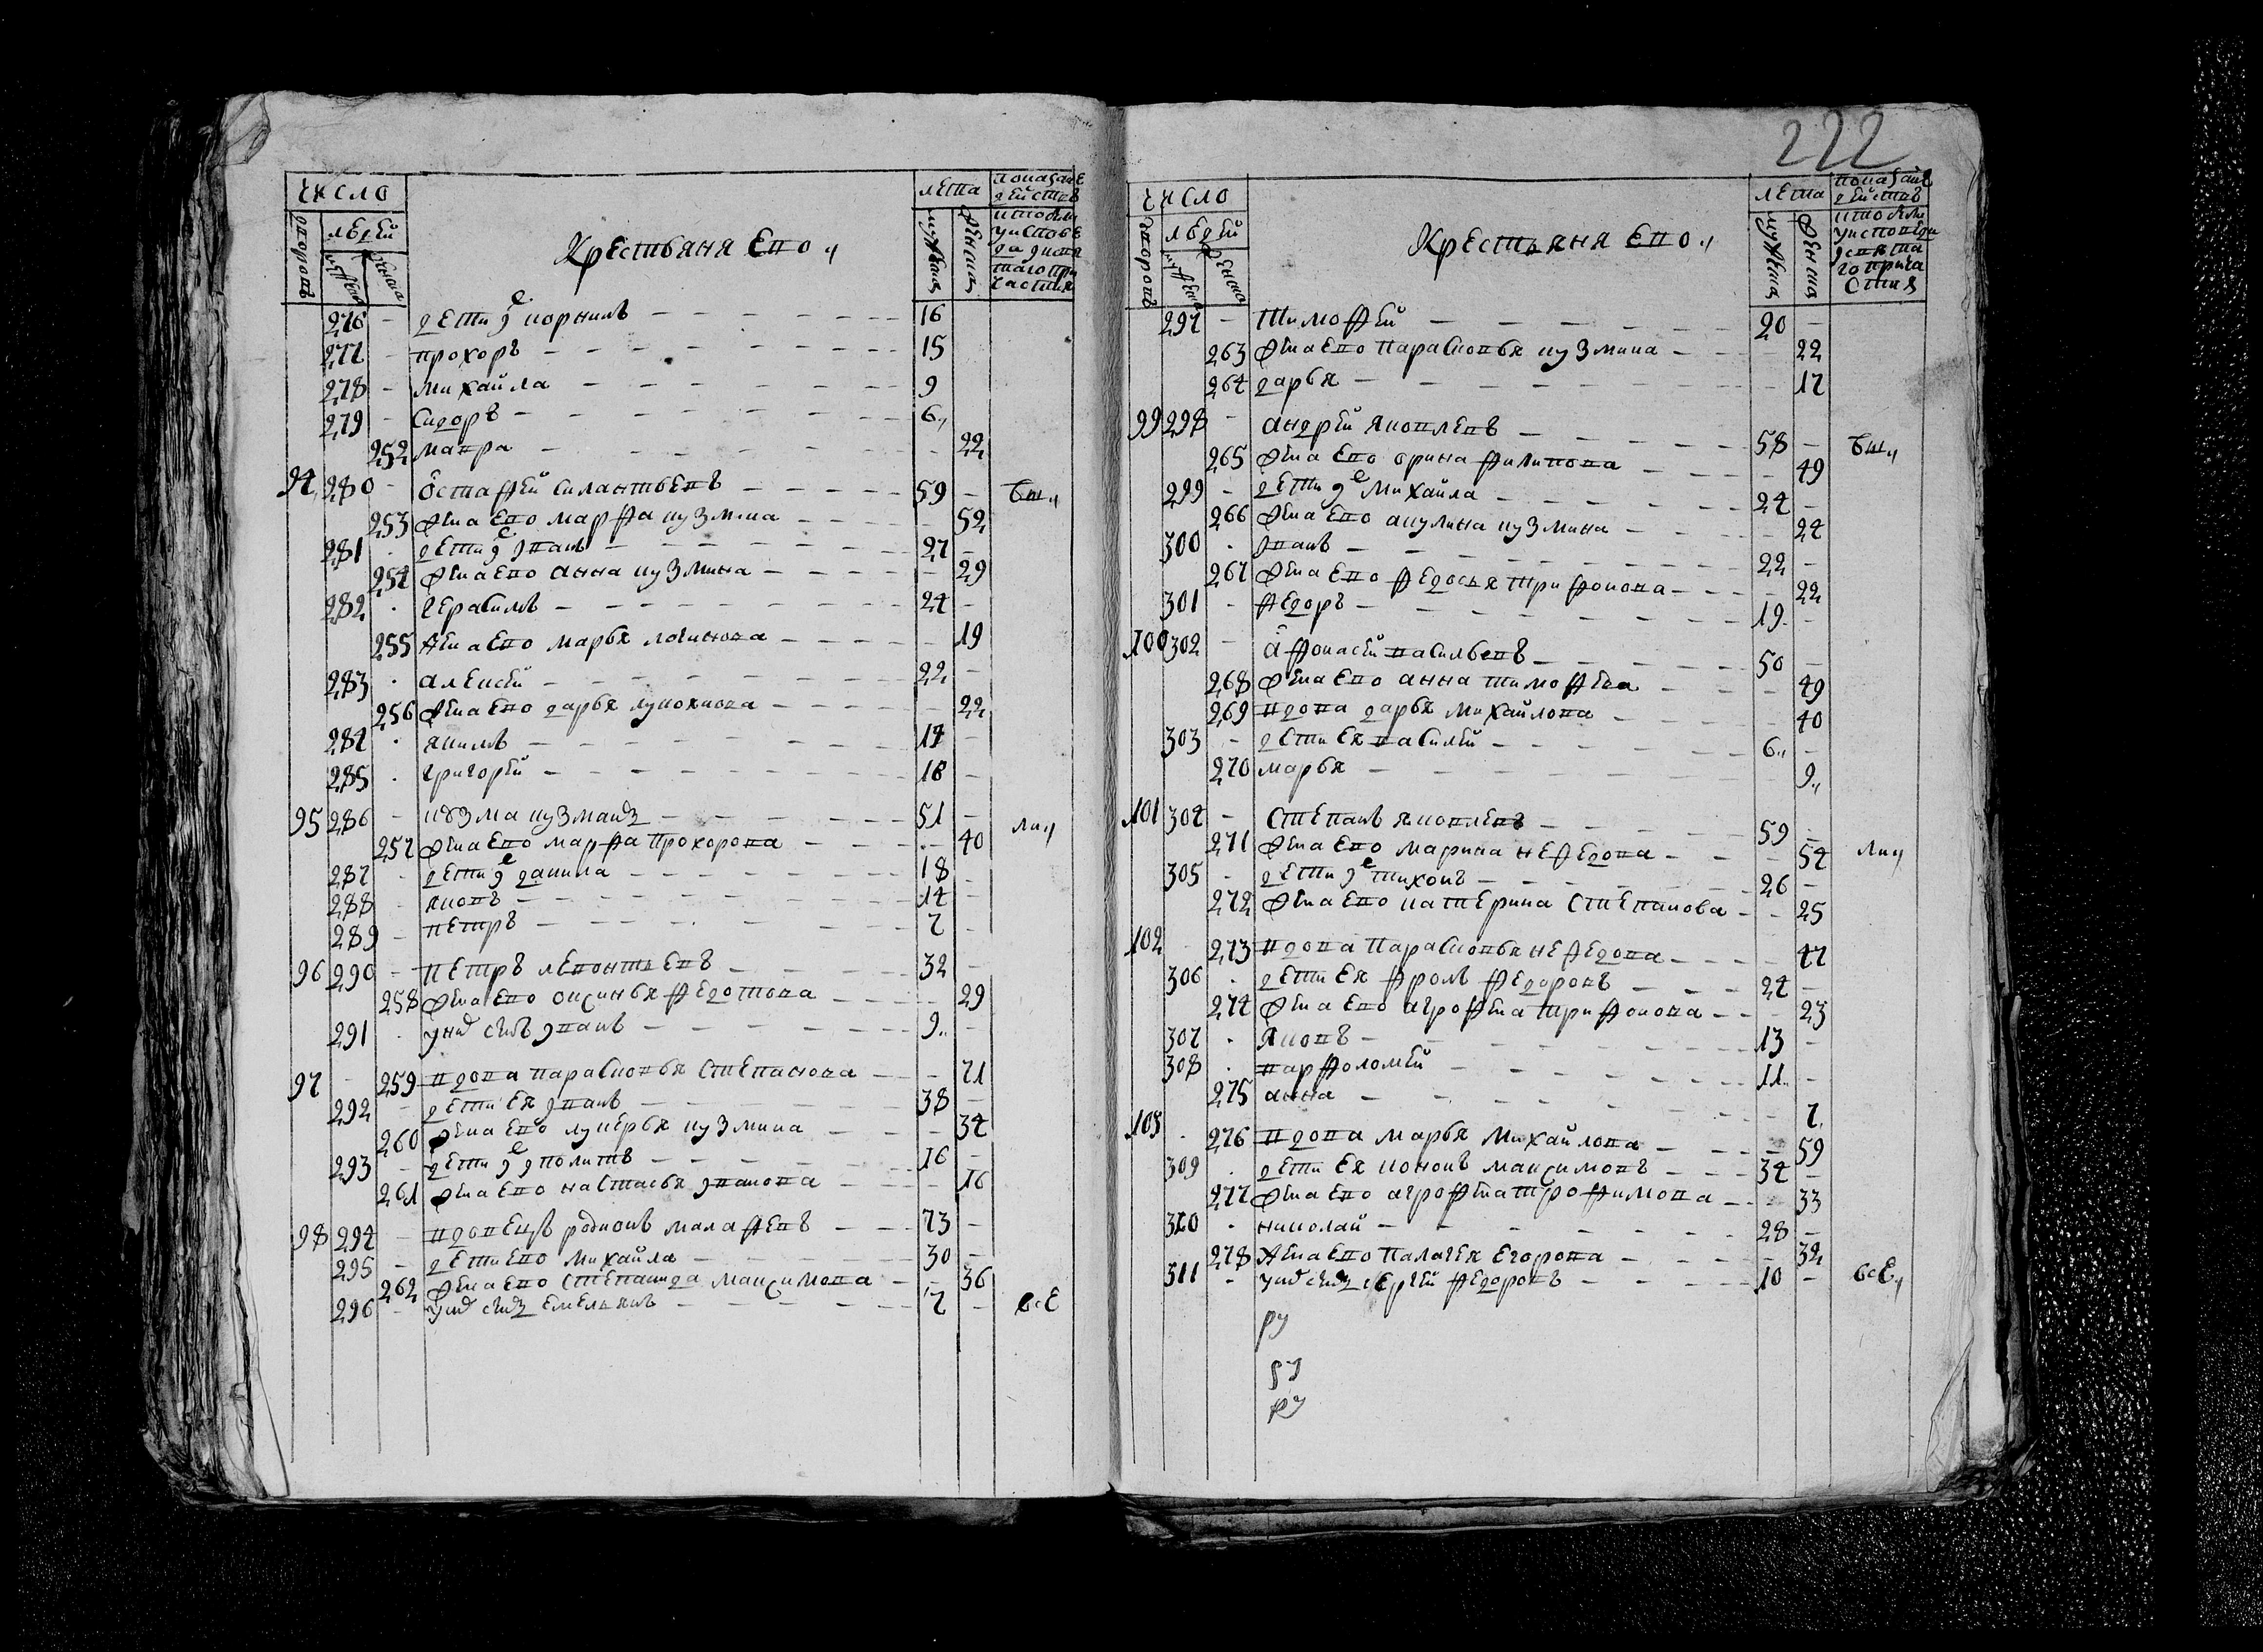 число
дворовъ
людей
мужеска
женска
Крестьяня Ево
лета
мужеска
женска
показание действ кто был у исповеди и святаго причастия
276 - дети ихъ корнилъ - 16
277 - прохоръ - 15
278 - михайла - 9
279 - сидоръ - 6
252 мавра - 22
94 280 - Остафей силантьевъ - 59 - бы
253 жена ево марфа кузмина - 52
281 - дети ихъ иванъ - 27
254 жена ево анна кузмина - 29
282 - герасимъ - 24
255 жена ево марья логинова - 19
283 - алексей - 22
256 жена ево дарья лукоянова - 22
284 - якимъ - 17
285 - григорей - 16
95 286 - козма кузминъ - 51 - ли
257 жена ево марфа прохорова - 40
287 - дети ихъ данила - 18
288 - яковъ - 14
289 - петръ - 7
96 290 - петръ левонтьевъ - 32
258 жена ево оксинья федотова - 29
291 - у них сынъ иванъ - 9
97 - 259 вдова парасковья степанова - 71
292 - дети ея иванъ - 38
260 жена ево лукерья кузмина - 34
293 - дети ихъ иполитъ - 16
261 жена ево настасья иванова - 16
98 294 - вдовецъ родионъ малафеевъ - 73
295 - дети ево михайла - 30
262 жена ево степанида максимова - 36
296 - у них сынъ емельянъ - 7 - все
222
число
дворовъ
людей
мужеска
женска
Крестьяня Ево
лета
мужеска
женска
показание действ кто был у исповеди и святаго причастия
297 - тимофей - 20
263 жена ево парасковья кузмина - 22
264 дарья - 17
99 298 - андрей яковлевъ - 58 - бы
265 жена ево орина филипова - 49
299 - дети ихъ михайла - 24
266 жена ево акулина кузмина - 24
300 - иванъ - 22
267 жена ево федосья трифонова - 22
301 - федоръ - 19
100 302 - афонасей васильевъ - 50
268 жена ево анна тимофева - 49
269 вдова дарья михайлова - 40
303 - дети ея василей - 6
270 марья - 9
101 304 - степанъ яковлевъ - 59 - ли
271 жена ево марина нефедова - 54
305 - дети ихъ тихонъ - 26
272 жена ево катерина степанова - 25
102 - 273 вдова парасковья нефедова - 47
306 - дети ея фролъ федоровъ - 24
274 жена ево агрофена трифонова - 23
307 - яковъ - 13
308 - варфоломей - 11
275 анна - 7
103 - 276 вдова марья михайлова - 59
309 - дети ея кононъ максимовъ - 34
277 жена ево агрофена трофимова - 33
310 - николай - 28
278 жена ево палагея егорова - 32
311 - у них сынъ сергей федоровъ - 10 - все
ру
ру
ру